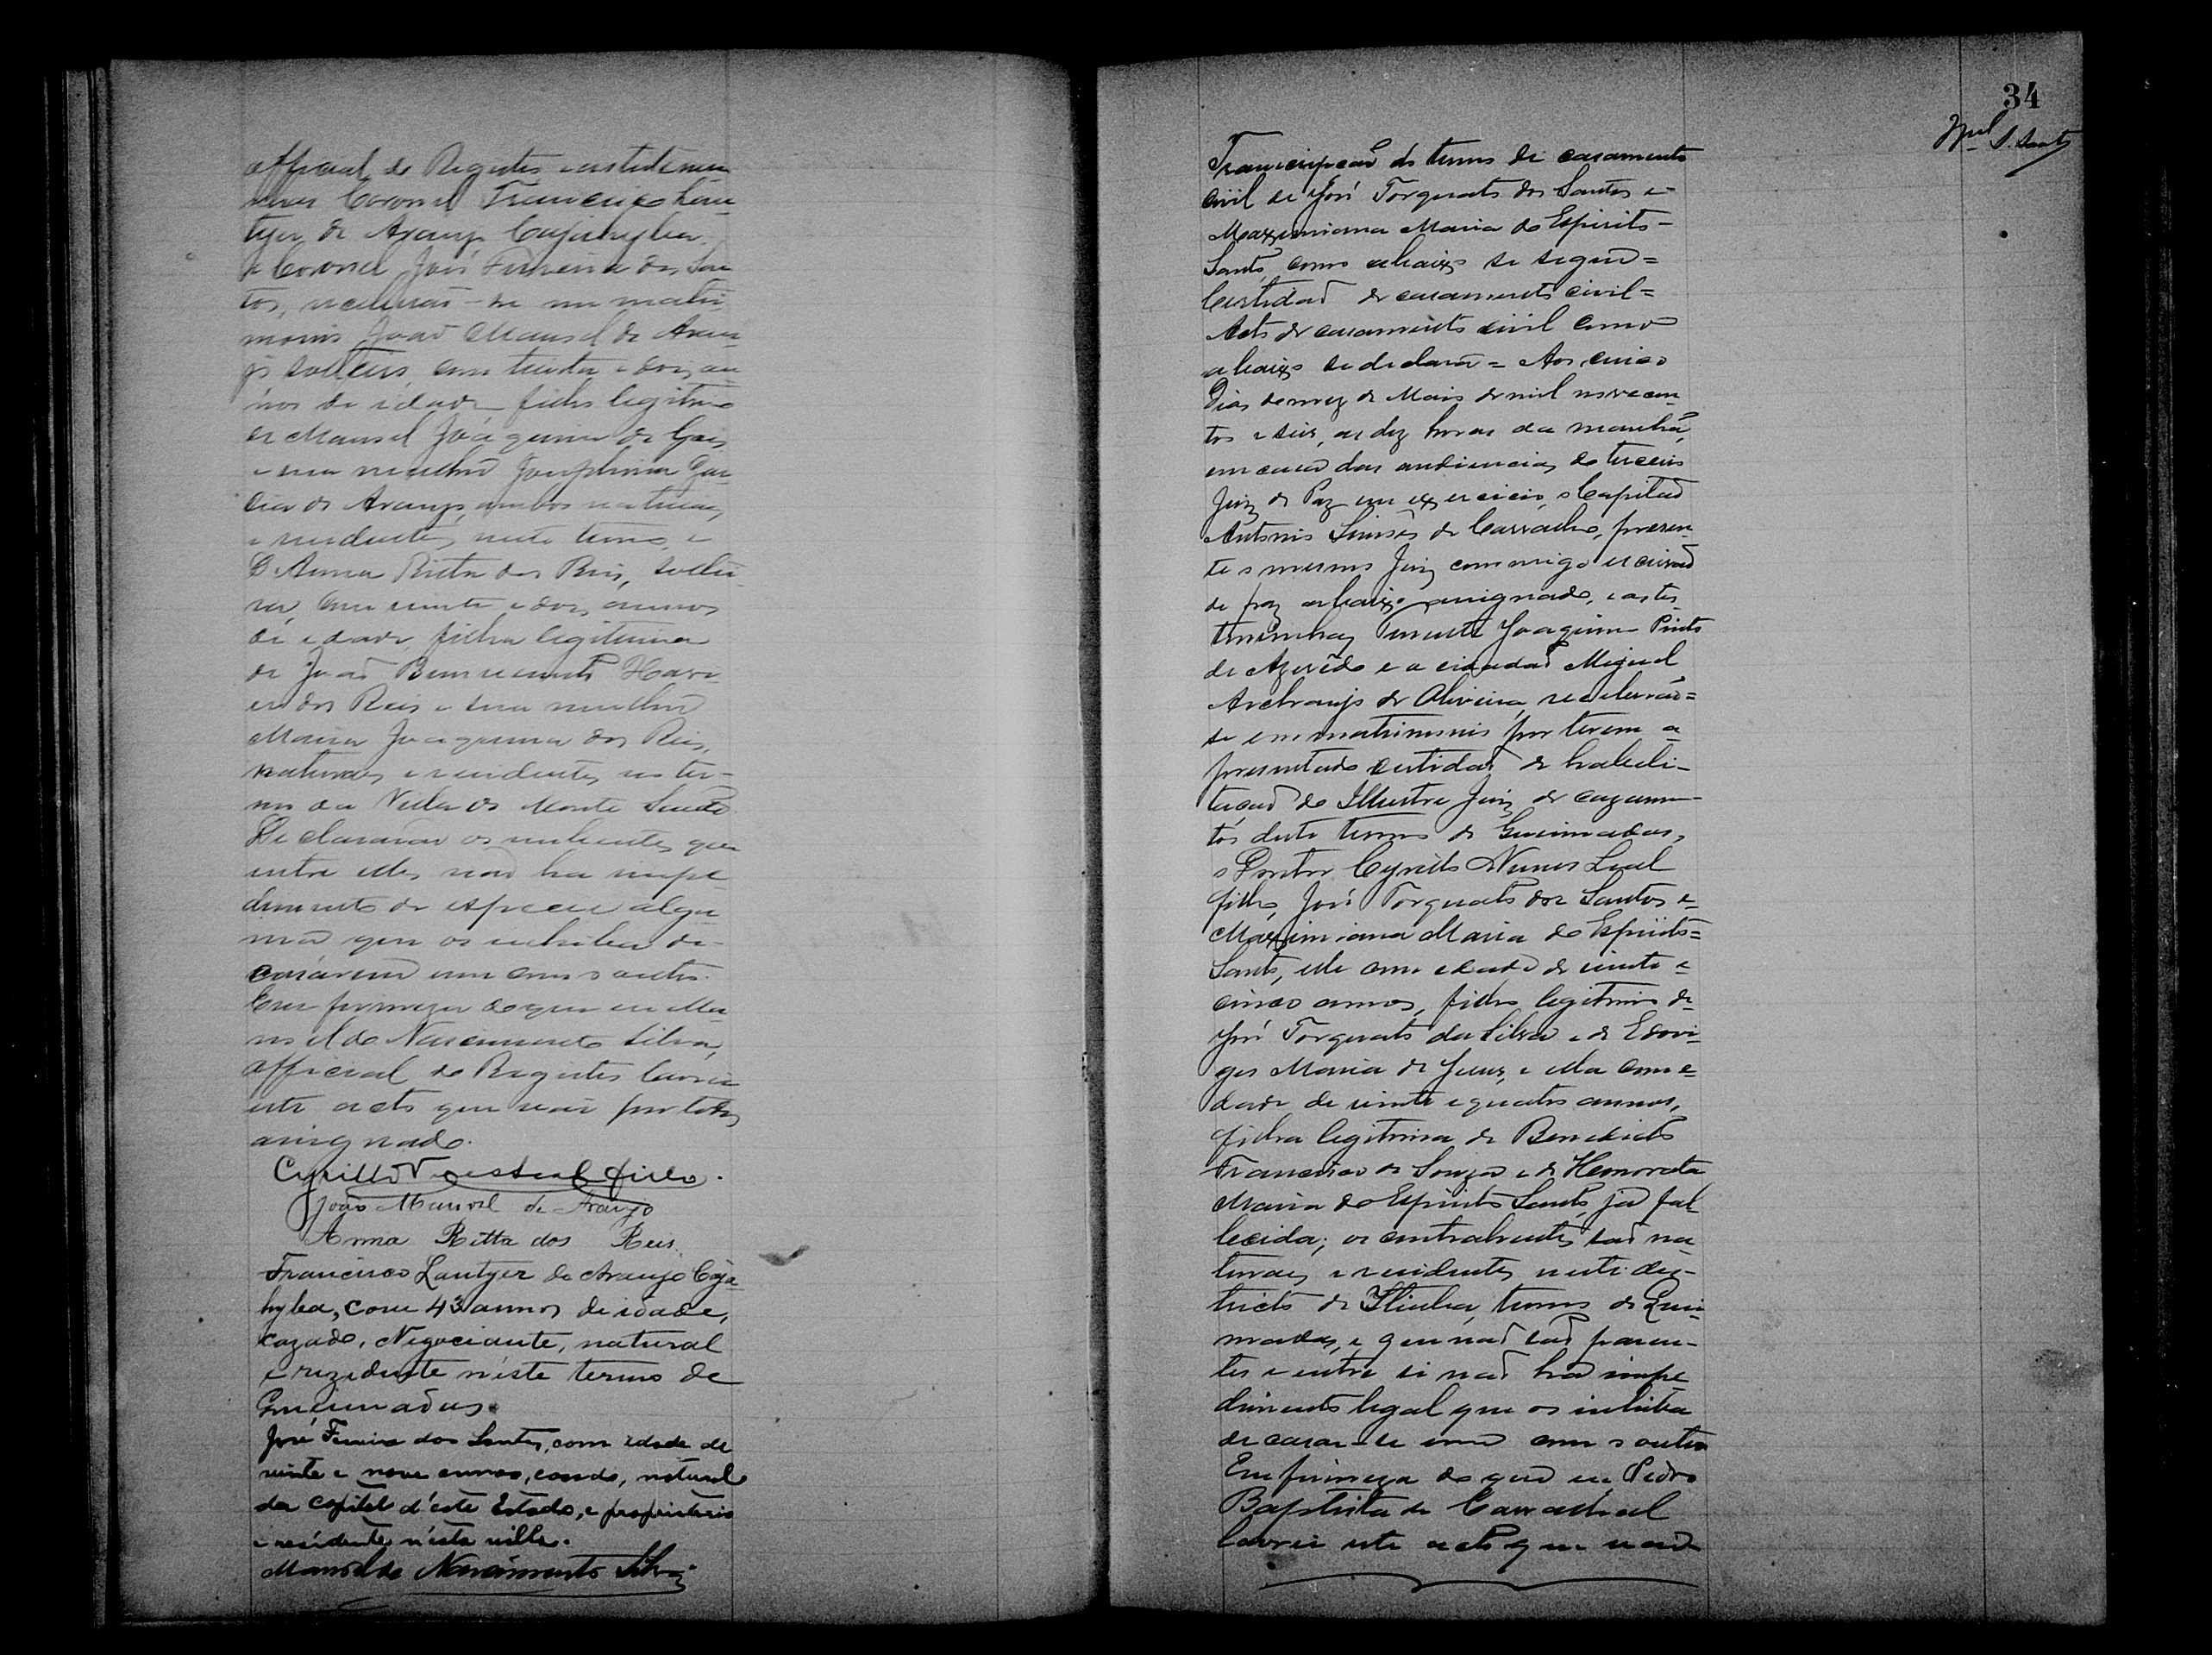 official do Registro e as testemu
nhas Coronel Francisco Lau
tyer de Araujo Cajahyba
e Coronel José Ferreira dos San
tos, receberão-se em matri
monio João Manoel de Arau
jo solteiro, com trinta e dois an
nos de idade filho legitimo
de Manoel Joaquim de Goes
e sua mulher Josephina Gar
cia de Araujo, ambos naturaes
e residentes neste termo, e
D. Anna Ritta dos Reis, soltei
ra, com vinte e dois annos
de idade, filha legitima
de João Xavi
er dos Reis e sua mulher
Maria Joaquina dos Reis,
naturaes e residentes no ter-
mo da Villa de Monte Santo.
Declararão os nubentes que
entre elles não ha impe
dimento de especie algu
ma que os inhiba de
casarem um com o outro.
Em firmeza do que eu Ma
noel do Nascimento Silva,
official do Registro lavrei
este acto que vai por todos
assignado.
Cyrillo Nunes Leal filho.
João Manoel de Araujo
Anna Ritta dos Reis.
Francisco Lautyer de Araujo Caja-
hyba, com 43 annos de idade,
cazado, Negociante, natural
e rezidente n'este termo de
Queimadas.
José Ferreira dos Santos, com idade de
vinte e nove annos, casado, natural
da capital d'este Estado, e proprietario
e residente n'esta villa.
Manoel do Nascimento Silva
34
Transcripção do termo de casamento
civil de José Torquato dos Santos e
Maxymiana Maria do Espirito-
Santo, como abaixo se segue=
Certidão de casamento civil=
Acto de casamento civil como
abaixo se declara= Aos cinco
Dias do mez de Maio de mil novecen-
tos e seis, as dez horas da manhã,
em casa das audiencias do terceiro
Juiz de Paz em exercicio, o Capitão
Antonio Simões de Carvalho, presen-
te o mesmo Juiz commigo escrivão
de paz abaixo assignado, e as tes-
timunhas Tenente Joaquim Pinto
de Azevêdo e o cidadão Miguel
Archanjo de Oliveira, receberão=
se em matrimonio por terem a-
presentado certidão de habeli-
tacão do Illustre Juiz de cazamen-
tos deste termo de Queimadas,
o Doutor Cyrillo Nunes Leal
filho, José Torquato dos Santos e
Maxymiana Maria do Espirito=
Santo, elle com edade de vinte e
cinco annos, filho legitimo de
José Torquato da Silva e de Edovi-
ges Maria de Jesus, e ella com e-
dade de vinte e quatro annos,
filha legitima de Benedicto
Francisco de Souza e de Honorata
Maria do Espirito Santo, já fal
lecida; os contrahentes são na-
turaes e residentes neste dis-
tricto de Itiuba, termo de Quei-
madas, e que não são paren-
tes e entre si não ha impe
dimento legal que os inhiba
de casar-se um com o outro
Em firmeza do que eu Pedro
Baptista de Carvalhal
lavrei este acto que vai